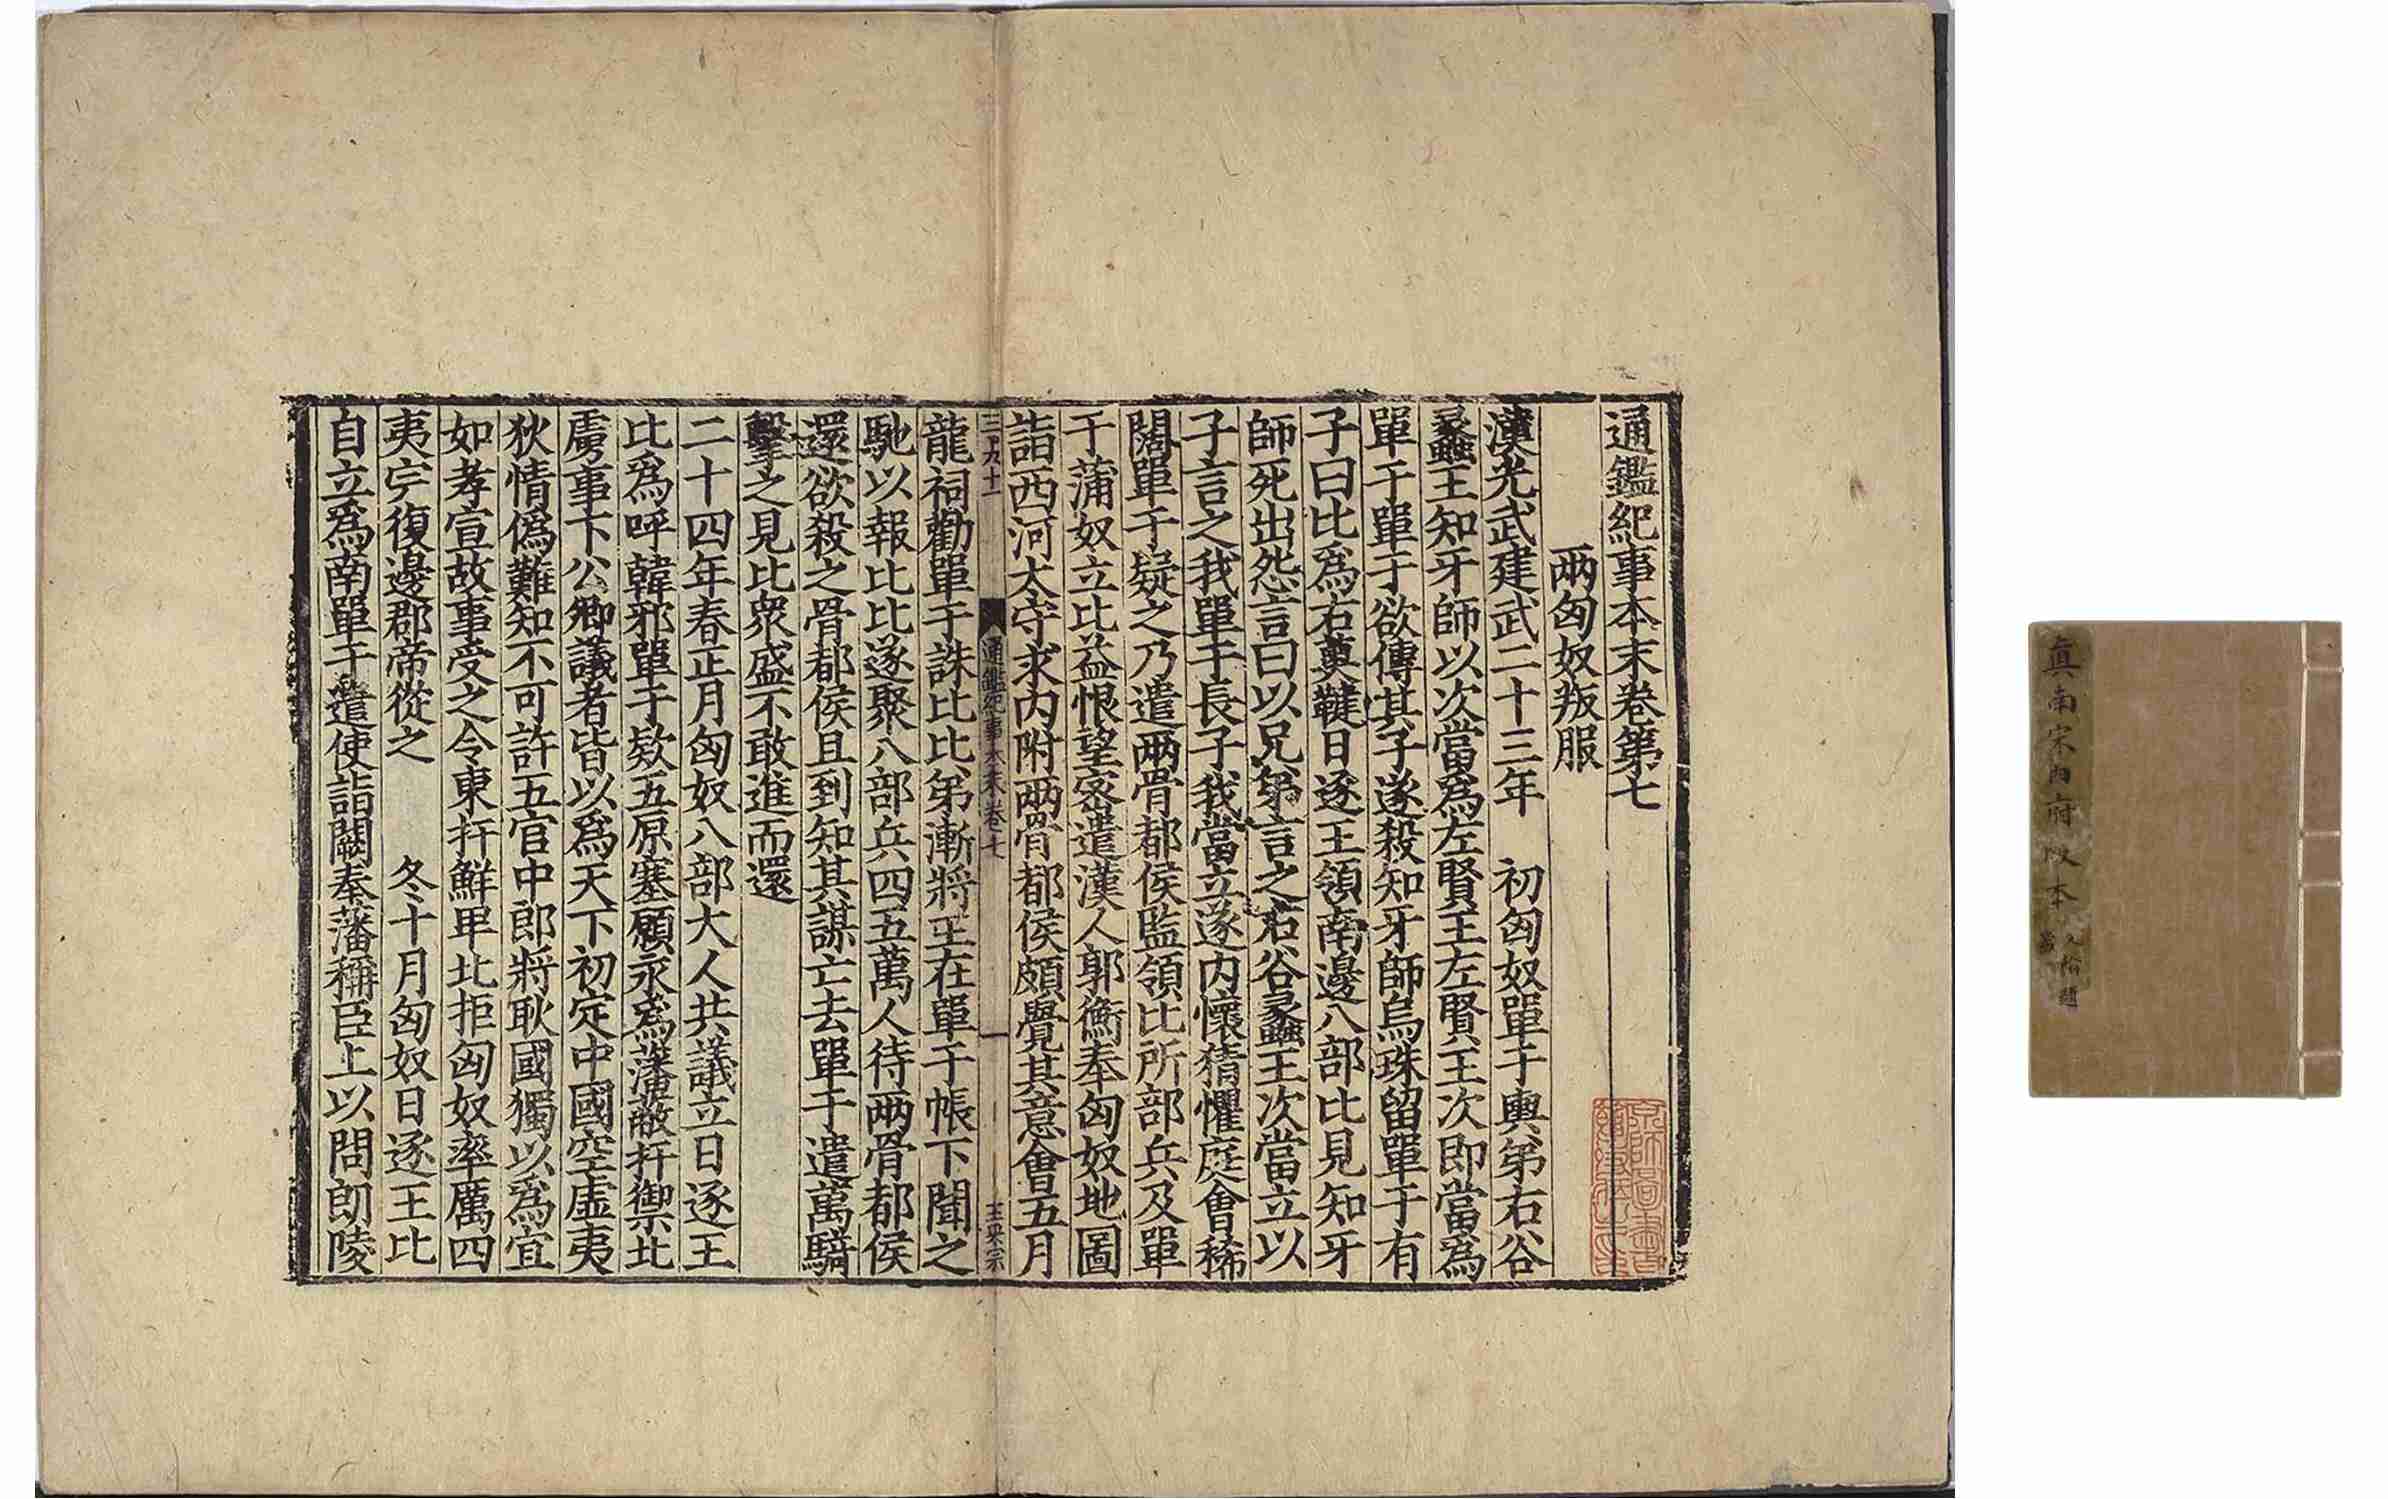 通鑑紀事本末卷第七
兩匈奴叛服
漢光武建武二十三年 初匈奴單于輿弟右谷
蠡王知牙師以次當爲左賢王左賢王次即當爲
單于單于欲傳其子遂殺知牙師烏珠留單于有
子曰比爲右薁鞬日逐王領南邊八部比見知牙
師死出怨言曰以兄弟言之右谷蠡王次當立以
子言之我單于長子我當立遂内懷猜懼庭會稀
闊單于疑之乃遣兩骨都侯監領比所部兵及單
于蒲奴立比益恨望密遣漢人郭衡奉匈奴地圖
詣西河太守求内附兩骨都侯頗覺其意會五月
通鑑紀事本末卷七
一
龍祠勸單于誅比比弟漸將王在單于帳下聞之
馳以報比比遂聚八部兵四五萬人待兩骨都侯
還欲殺之骨都侯且到知其謀亡去單于遣萬騎
擊之見比衆盛不敢進而還
二十四年春正月匈奴八部大人共議立日逐王
比爲呼韓邪單于欵五原塞願永爲藩蔽扞禦北
虜事下公卿議者皆以爲天下初定中國空虛夷
狄情僞難知不可許五官中郎將耿國獨以爲宜
如孝宣故事受之令東扞鮮卑北拒匈奴率厲四
夷完復邊郡帝從之 冬十月匈奴日逐王比
自立爲南單于遣使詣闕奉藩稱臣上以問朗陵
京師圖書
真南宋内府版本